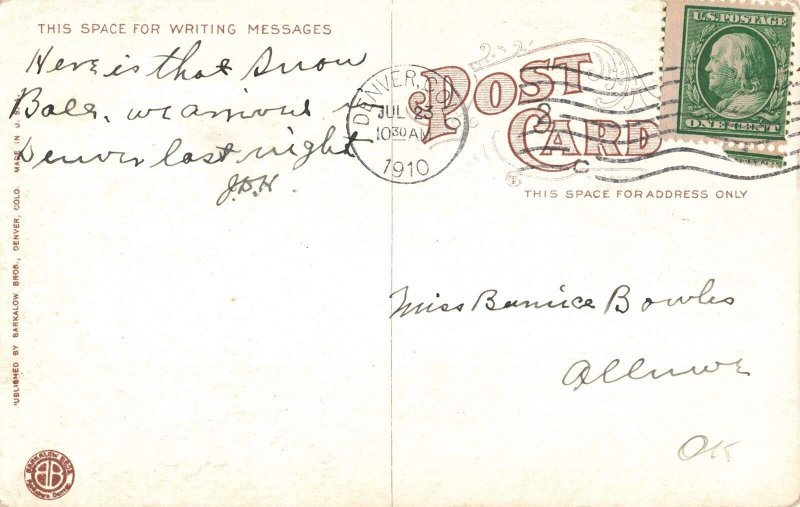 THIS SPACE FOR WRITING MESSAGES
Here is that Snow
Ball. we arrived in
Denver last night
J.B.H.
PUBLISHED BY BARKALOW BROS., DENVER, COLO. MADE IN U.S.
BARKALOW BROS.
BB
Publishers Denver
POST CARD
THIS SPACE FOR ADDRESS ONLY
DENVER, COLO
JUL 23
10 30 AM
1910
2
C
U.S. POSTAGE
ONE CENT
Miss Bernice Bowles
Alluwe
Ok